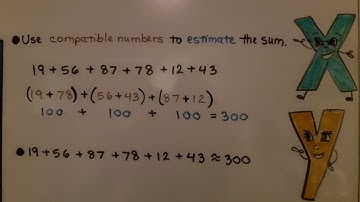 ● Use compatible numbers to estimate the sum.
19 + 56 + 87 + 78 + 12 + 43
(19 + 78) + (56 + 43) + (87 + 12)
100 + 100 + 100 = 300
● 19 + 56 + 87 + 78 + 12 + 43 ≈ 300
X
y